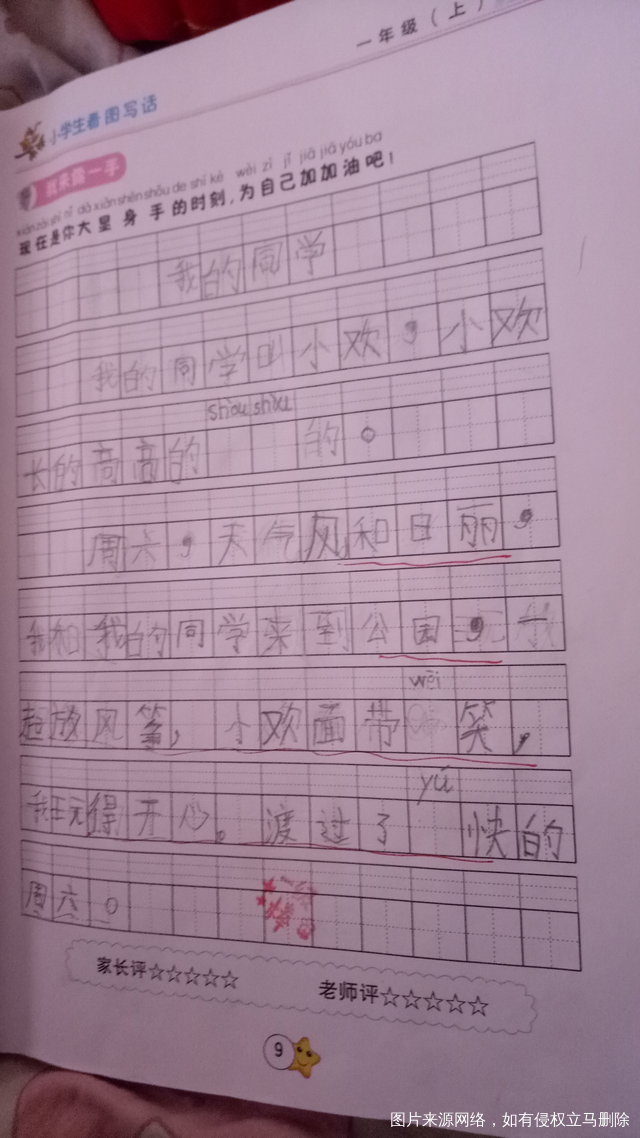 一年级(上)
小学生看图写话
我来露一手
xiàn zài shì nǐ dà xiǎn shēn shǒu de shí kè wèi zì jǐ jiā jiā yóu ba
现在是你大显身手的时刻,为自己加加油吧!
我的同学
我的同学叫小欢,小欢
shòu shòu
长的高高的 的。
周六,天气风和日丽,
我和我的同学来到公园,一
wēi
起放风筝,小欢面带 笑,
yú
我玩得开心。渡过了 快的
周六。
家长评☆☆☆☆☆ 老师评☆☆☆☆☆
9
图片来源网络,如有侵权立马删除